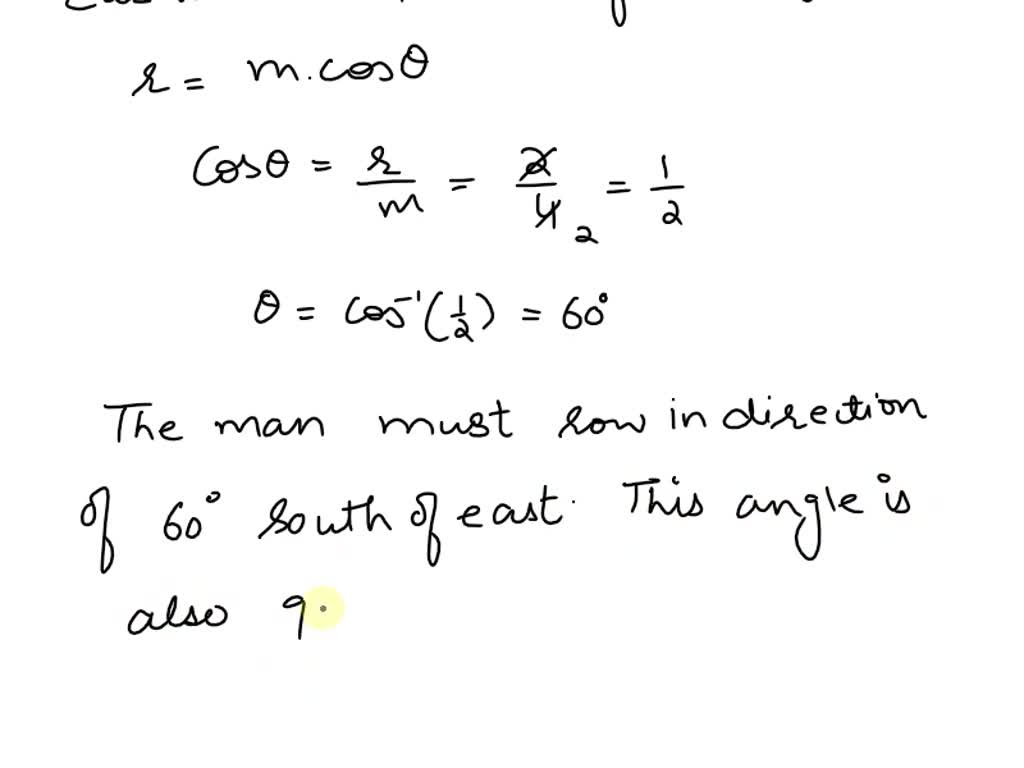 r = m.cosθ
Cosθ = r/m = 2/4 2 = 1/2
θ = cos⁻¹(1/2) = 60°
The man must row in direction
of 60° south of east. This angle is
also 9